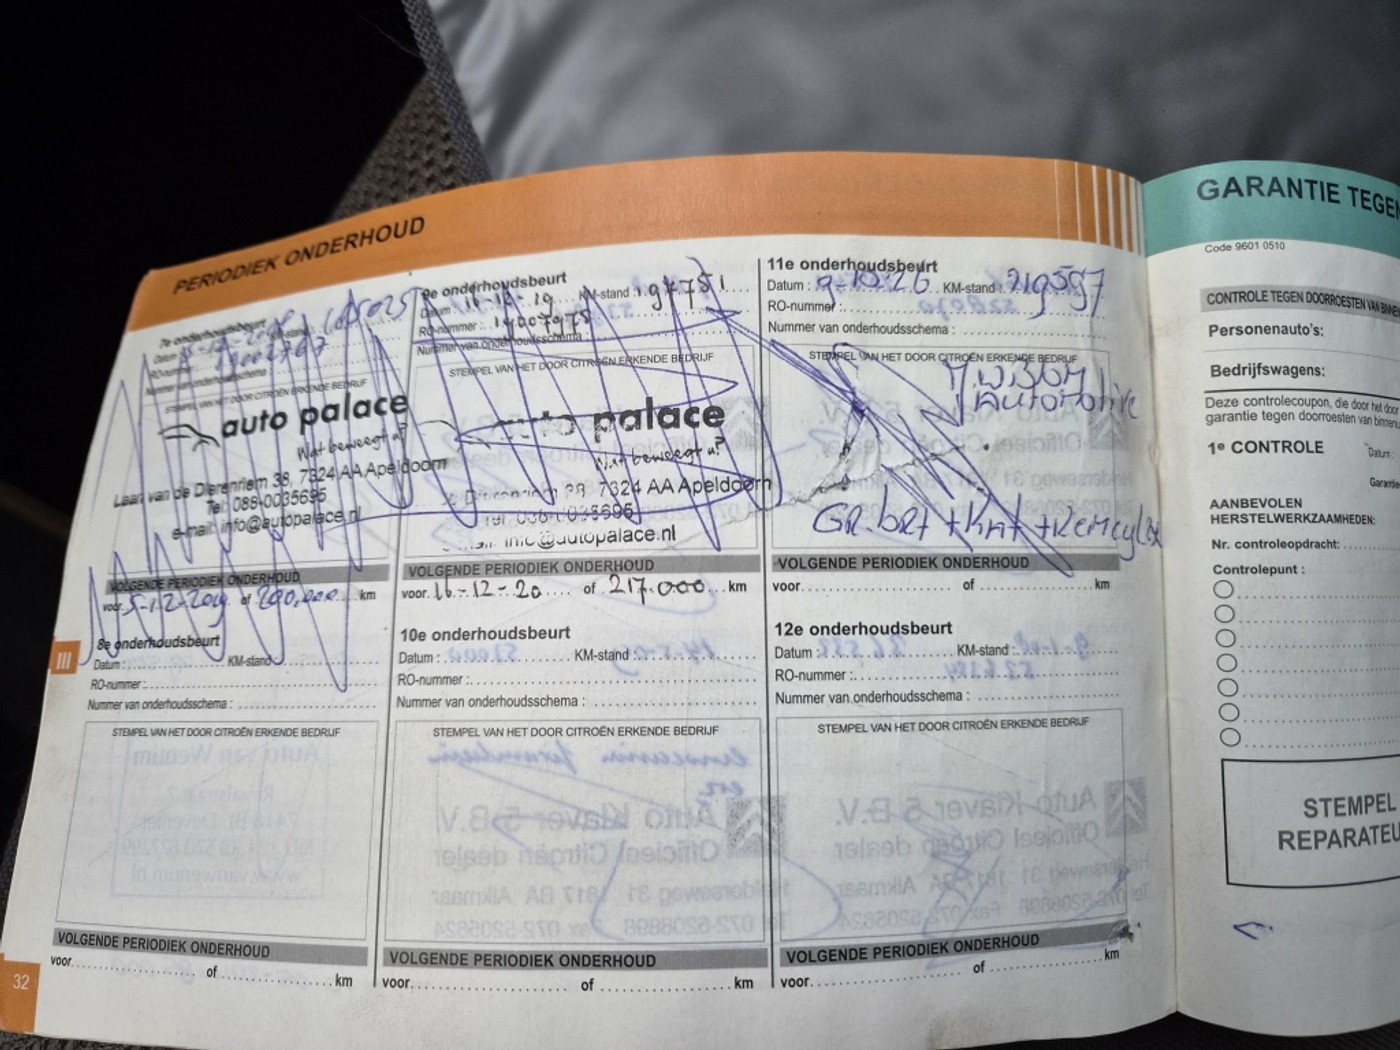 PERIODIEK ONDERHOUD
7e onderhoudsbeurt
Datum
KM-stand
RO-nummer
Nummer van onderhoudsschema
STEMPEL VAN HET DOOR CITROËN ERKENDE BEDRIJF
auto palace
Wat beweegt u?
Laan van de Dierenriem 38, 7324 AA Apeldoorn
Tel: 088-0035695
e-mail: info@autopalace.nl
VOLGENDE PERIODIEK ONDERHOUD
voor 5-12-2019 of km
8e onderhoudsbeurt
Datum : KM-stand
RO-nummer :
Nummer van onderhoudsschema :
STEMPEL VAN HET DOOR CITROËN ERKENDE BEDRIJF
VOLGENDE PERIODIEK ONDERHOUD
voor of km
32
III
9e onderhoudsbeurt
Datum : 16-12-19 KM-stand 194751
RO-nummer :
Nummer van onderhoudsschema :
STEMPEL VAN HET DOOR CITROËN ERKENDE BEDRIJF
auto palace
Wat beweegt u?
7324 AA Apeldoorn
info@autopalace.nl
VOLGENDE PERIODIEK ONDERHOUD
voor 16-12-20 of 217.000 km
10e onderhoudsbeurt
Datum : KM-stand :
RO-nummer :
Nummer van onderhoudsschema :
STEMPEL VAN HET DOOR CITROËN ERKENDE BEDRIJF
VOLGENDE PERIODIEK ONDERHOUD
voor of km
11e onderhoudsbeurt
Datum : KM-stand : 219597
RO-nummer :
Nummer van onderhoudsschema :
STEMPEL VAN HET DOOR CITROËN ERKENDE BEDRIJF
Automotive
Gr. brt +
VOLGENDE PERIODIEK ONDERHOUD
voor of km
12e onderhoudsbeurt
Datum : KM-stand :
RO-nummer :
Nummer van onderhoudsschema :
STEMPEL VAN HET DOOR CITROËN ERKENDE BEDRIJF
VOLGENDE PERIODIEK ONDERHOUD
voor of km
GARANTIE TEGEN
Code 9601 0510
CONTROLE TEGEN DOORROESTEN VAN BINNEN
Personenauto's:
Bedrijfswagens:
Deze controlecoupon, die door het door
garantie tegen doorroesten van binnen
1e CONTROLE
Datum :
Garantie
AANBEVOLEN
HERSTELWERKZAAMHEDEN:
Nr. controleopdracht:
Controlepunt :
STEMPEL
REPARATEU